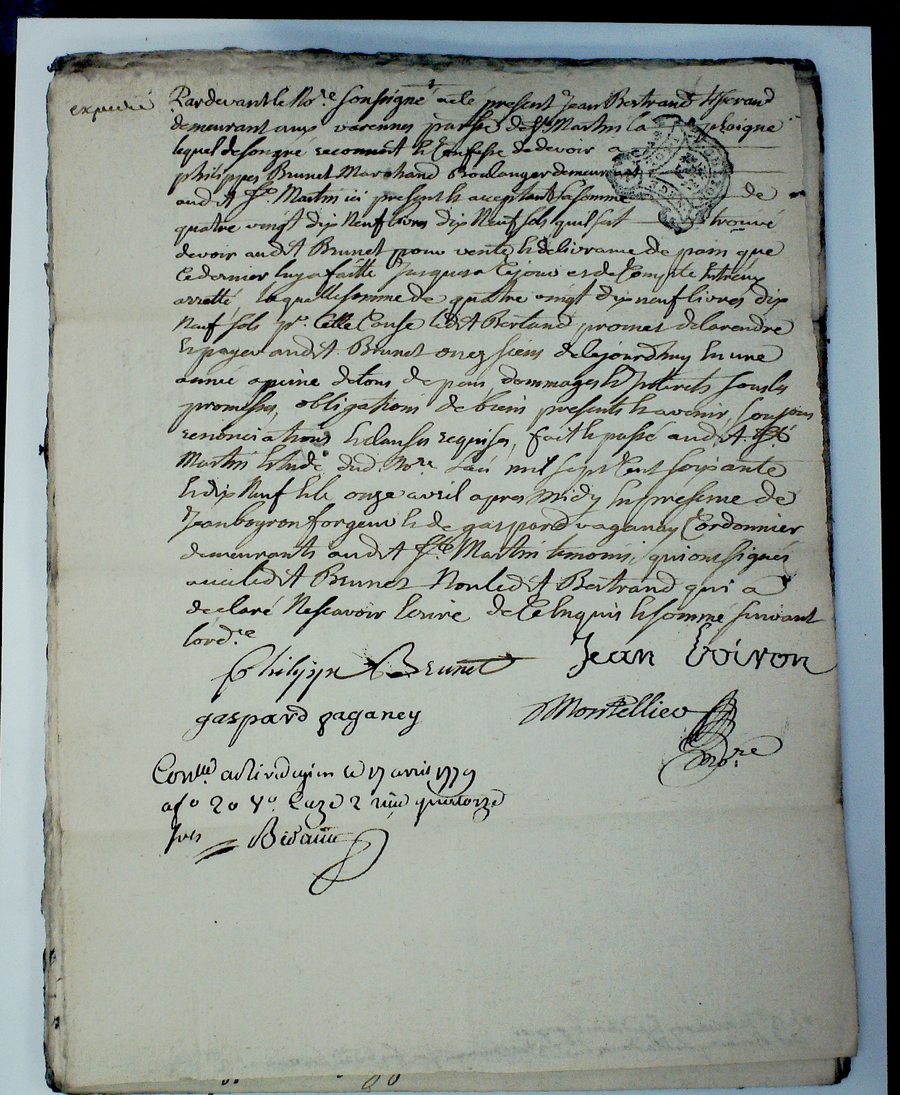 expedié
Pardevant le No.re soussigné a été present Jean Bertrand tisserand
demeurant aux varennes parsse de St. Martin la
lequel de son gre reconnoit et Confesse de devoir a
philippes Brunet Marchand Boulanger demeurant
audit St. Martin ici present et acceptant la somme de
quatre vingt dix Neuf livres dix Neuf sols qu'il s'est trouvé
devoir audit Brunet pour vente et delivrance de pain que
ce dernier luy a faitte Jusques a ce jour et de Compte Entreux
arretté laquelle somme de quatre vingt dix neuf livres dix
Neuf sols pr. Cette Cause ledit Bertrand promet de la rendre
et payer audit Brunet ou es siens de ce jourdhuy En une
année a peine de tous depens, dommages et Interets sous les
promesses, obligations de biens presents et avenir, soumissions
renonciations et clauses requises, fait et passé audit St.
Martin Etude dud. No.re L'an mil sept Cent soixante
et dix Neuf et le onze avril apres Midy En presence de
Jean forgeur et de gaspard vaganay Cordonnier
demeurants audit St. Martin temoins qui ont signés
avec ledit Brunet Non ledit Bertrand qui a
declaré Ne scavoir Ecrire de ce Enquis et sommé suivant
l'ord.ce
Philippe Brunet Jean
gaspard vaganey Montellier
No.re
Con.llé a le 17 avril 1779
a fo 20 Vo. Caze 2 reçu quatorze
sols